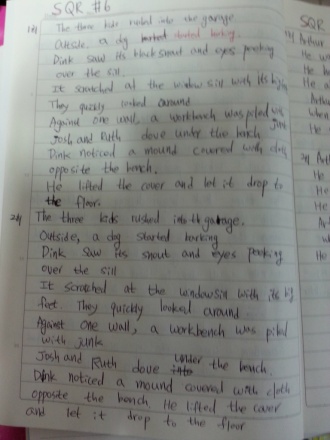 SQR #6
1st The three kids rushed into the garage.
Outside, a dog barked started barking.
Dink saw its black snout and eyes peeking
over the sill.
It scratched at the window sill with its big
They quickly looked around
Against one wall, a workbench was piled with junk
Josh and Ruth dove under the bench
Dink noticed a mound covered with cloth
opposite the bench.
He lifted the cover and let it drop to
the floor.
2nd The three kids rushed into the garage.
Outside, a dog started barking
Dink saw its snout and eyes peeking
over the sill
It scratched at the windowsill with its big
feet. They quickly looked around
Against one wall, a workbench was piled
with junk
Josh and Ruth dove into under the bench.
Dink noticed a mound covered with cloth
opposite the bench. He lifted the cover
and let it drop to the floor
SQR
1st Arthur
He
He
He a
Art
when
He
2nd Art
He
He
He
Ar
w
Ho